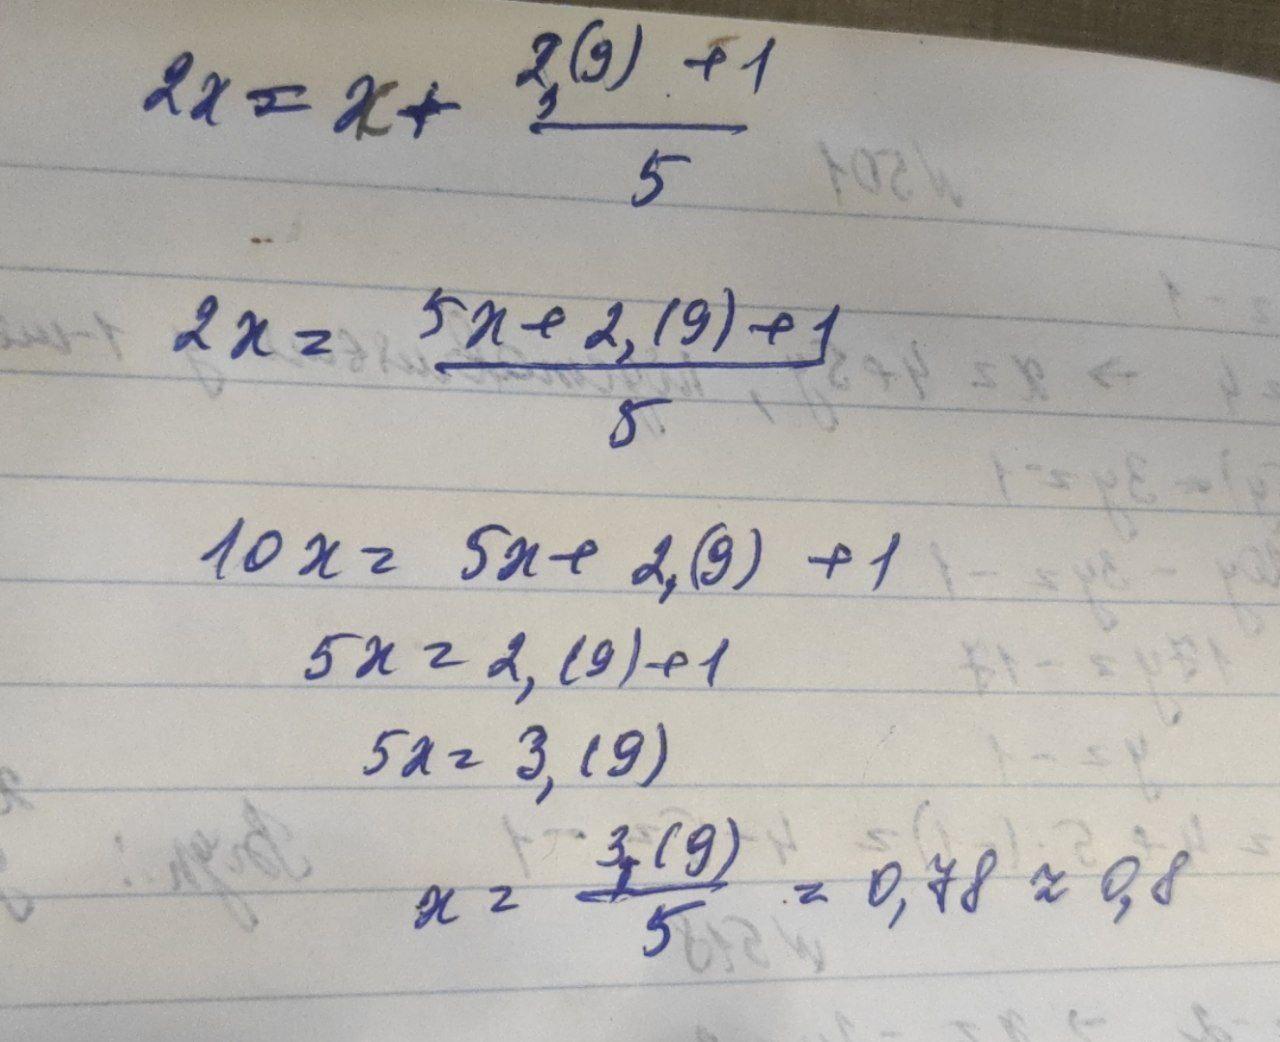 2x = x + (2,(9) + 1)/5
2x = (5x + 2,(9) + 1)/5
10x = 5x + 2,(9) + 1
5x = 2,(9) + 1
5x = 3,(9)
x = 3,(9)/5 = 0,78 ≈ 0,8